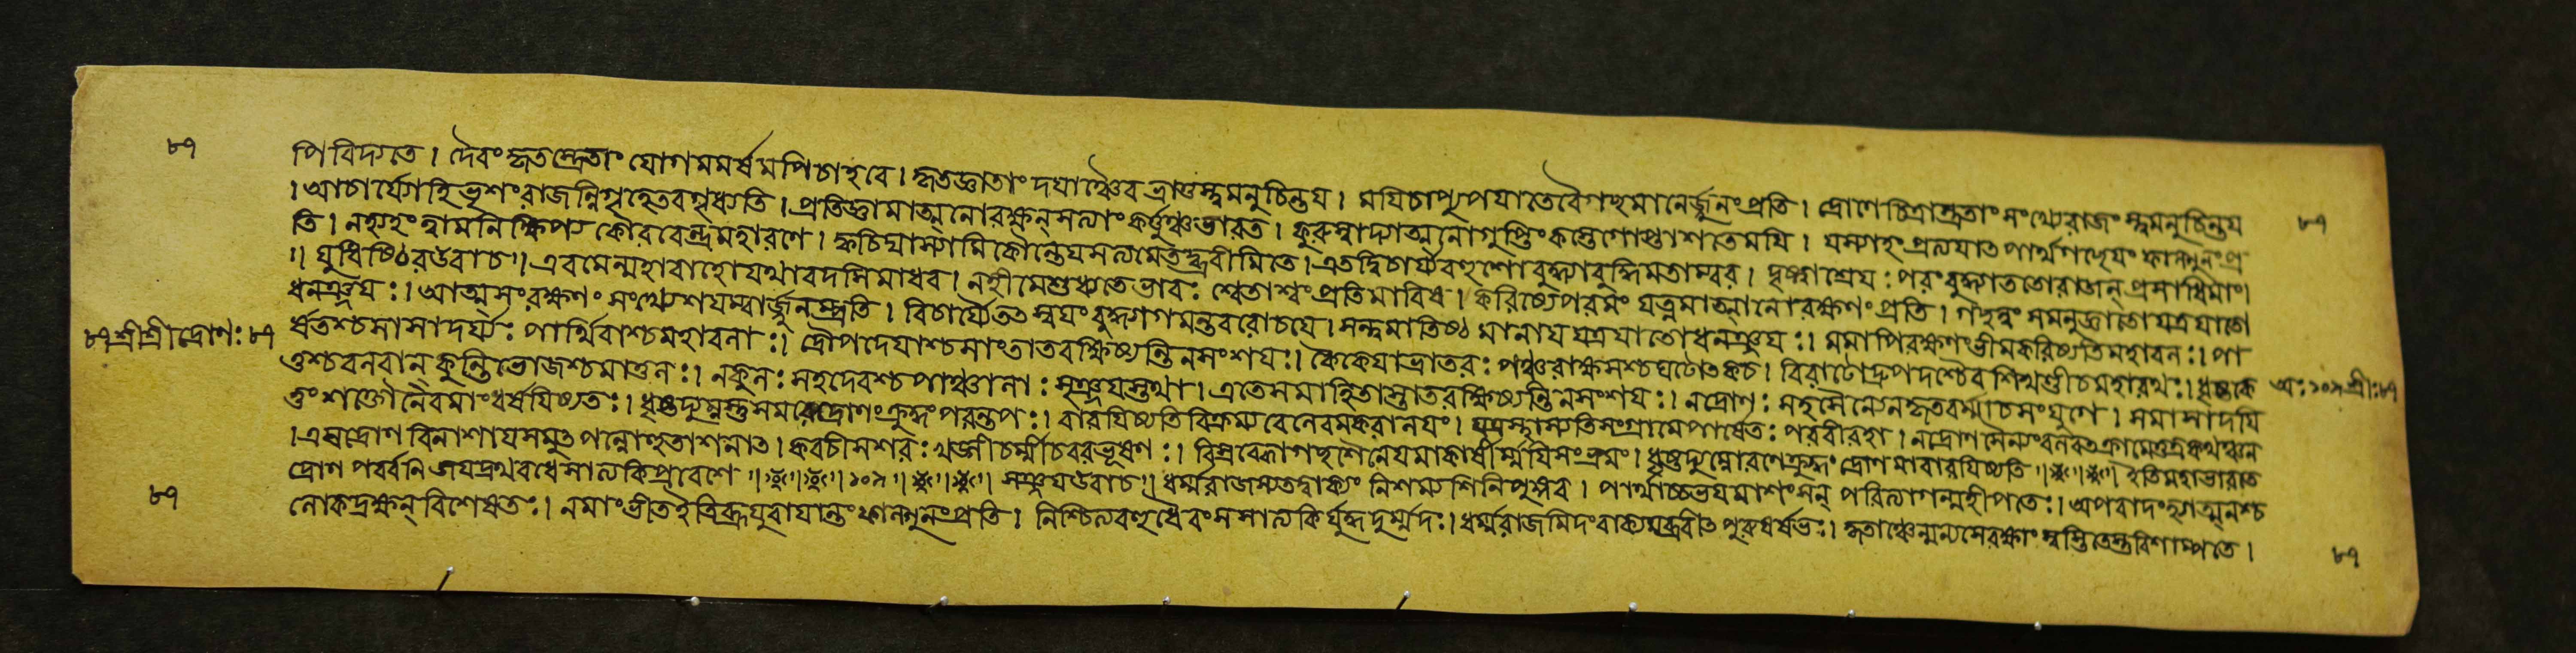 ৮৭
পি বিদ্যতে । দৈবং কৃতাস্ত্রতাং যোগমমর্ষমপি চাহবে । কৃতজ্ঞতাং দয়াঞ্চৈব ভ্রাতুস্ত্বমনুচিন্তয় । ময়ি চাপ্যপযাতে বৈ গচ্ছমানের্জ্জুনং প্রতি । দ্রোণে চিত্রাস্ত্রতাং সংখ্যে রাজংস্ত্বমনুচিন্তয়
। আচার্য্যো হি ভৃশং রাজন্নিগৃহে তব গৃধ্যতি । প্রতিজ্ঞামাত্মনো রক্ষন্ সত্যাং কর্ত্তুঞ্চ ভারত । কুরুষ্বাদ্যাত্মনো গুপ্তিং কস্তে গোপ্তা গতে ময়ি । যস্যাহং প্রত্যয়াৎ পার্থ গচ্ছেয়ং ফাল্গুনং প্র
তি । নহ্যহং ত্বামনিক্ষিপ্য কৌরবেন্দ্র মহারণে । ক্বচিদ্যাস্যামি কৌন্তেয় সত্যমেতদ্ব্রবীমি তে । এতদ্বিচার্য্য বহুশো বুদ্ধ্যা বুদ্ধিমতাম্বর । দৃষ্ট্বা শ্রেয়ঃ পরং বুদ্ধ্যা ততো রাজন্ প্রসাধি মাং ।
॥ যুধিষ্ঠির উবাচ ॥ এবমেতন্মহাবাহো যথা বদসি মাধব । নহী মে শুধ্যতে ভাবঃ শ্বেতাশ্বং প্রতি মারিষ । করিষ্যে পরমং যত্নমাত্মনো রক্ষণং প্রতি । গচ্ছ ত্বং সমনুজ্ঞাতো যত্র যাতো
ধনঞ্জয়ঃ । আত্মসংরক্ষণং সংখ্যে গমনঞ্চার্জ্জুনম্প্রতি । বিচার্য্যৈতৎ স্বয়ং বুদ্ধ্যা গমনন্তব রোচয়ে । স ত্বমাতিষ্ঠ যানায় যত্র যাতো ধনঞ্জয়ঃ । মমাপি রক্ষণং ভীমঃ করিষ্যতি মহাবলঃ । পা
৮৭ শ্রী শ্রী দ্রোণঃ ৮৭
র্ষতশ্চ সসোদর্য্যঃ পার্থিবাশ্চ মহাবলাঃ । দ্রৌপদেয়াশ্চ মাং তাত রক্ষিষ্যন্তি ন সংশয়ঃ । কৈকেয়া ভ্রাতরঃ পঞ্চ রাক্ষসশ্চ ঘটোৎকচ । বিরাটো দ্রুপদশ্চৈব শিখণ্ডী চ মহারথঃ । ধৃষ্টকে
অঃ ১০৯ শ্রীঃ ৮৭
তুশ্চ বলবান্ কুন্তিভোজশ্চ মাতুলঃ । নকুলঃ সহদেবশ্চ পাঞ্চালাঃ সৃঞ্জয়াস্তথা । এতে সমাহিতাস্তাত রক্ষিষ্যন্তি ন সংশয়ঃ । ন দ্রোণঃ সহ সৈন্যেন কৃতবর্ম্মা চ সংযুগে । সমাসাদয়ি
তুং শক্তো নৈব মাং ধর্ষয়িষ্যতঃ । ধৃষ্টদ্যুম্নস্তু সমরে দ্রোণং ক্রুদ্ধং পরন্তপঃ । বারয়িষ্যতি বিক্রম্য বেলেব মকরালয়ং । যত্র স্থাস্যতি সংগ্রামে পার্ষতঃ পরবীরহা । ন দ্রোণ সৈন্যং বলবৎ ক্রামেত্তত্র কথঞ্চন
। এষ দ্রোণ বিনাশায় সমুৎপন্নো হুতাশনাৎ । কবচী স শরঃ খড্গী চর্ম্মী চ বরভূষণঃ । বিস্রব্ধো গচ্ছ শৈনেয় মা কার্ষীর্ম্ময়ি সংভ্রমং । ধৃষ্টদ্যুম্নো রণে ক্রুদ্ধং দ্রোণমাবারয়িষ্যতি ॥ ॥ ইতি মহাভারতে
দ্রোণ পর্ব্বণি জয়দ্রথবধে সাত্যকিপ্রবেশে ॥ ॥ ১০৯ ॥ ॥ সঞ্জয় উবাচ ॥ ধর্ম্মরাজস্য তদ্বাক্যং নিশম্য শিনিপুঙ্গব । পার্থাচ্চ ভয়মাশংসন্ পরিত্যাগান্মহীপতেঃ । অপবাদং হ্যাত্মনশ্চ
৮৭
লোকদ্রক্ষন্ বিশেষতঃ । ন মাং ভীত ইতি ব্রূয়ুরায়ান্তং ফাল্গুনং প্রতি । নিশ্চিত্য বহুধৈবং স সাত্যকির্যুদ্ধদুর্ম্মদঃ । ধর্ম্মরাজমিদং বাক্যমব্রবীৎ পুরুষর্ষভঃ । কৃতাঞ্চেন্মন্যসে রক্ষাং স্বস্তি তেস্তু বিশাম্পতে ।
৮৭